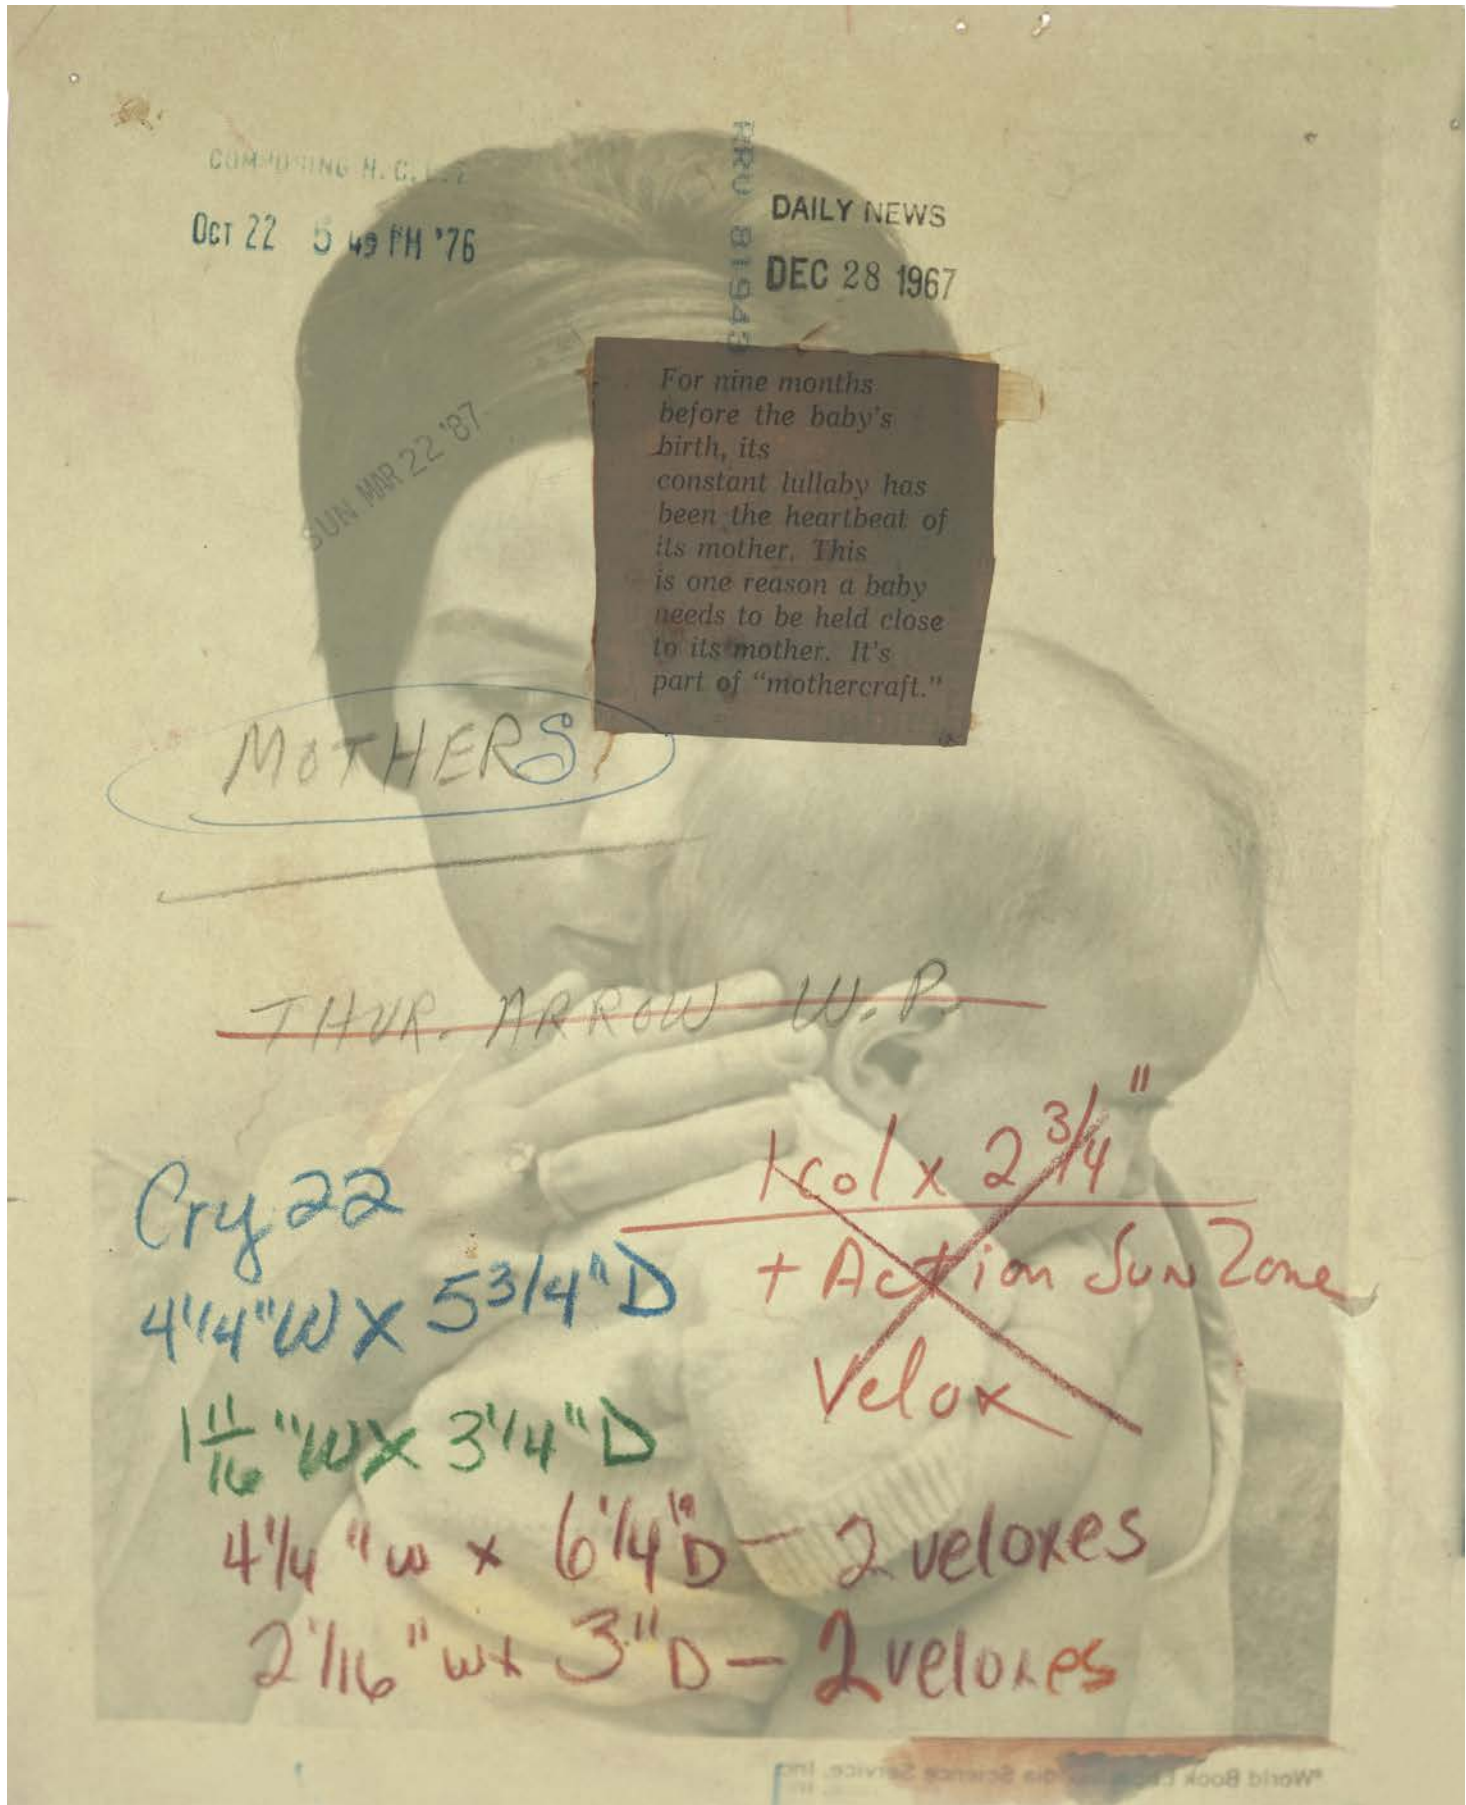 COMPOSING
OCT 22 5 49 PM '76
RRU 81943
DAILY NEWS
DEC 28 1967
SUN MAR 22 '87
For nine months
before the baby's
birth, its
constant lullaby has
been the heartbeat of
its mother. This
is one reason a baby
needs to be held close
to its mother. It's
part of "mothercraft."
MOTHERS
THUR. ARROW W.P.
1 col x 2 3/4"
+ Action Sun Zone
Velox
Cry 22
4 1/4" W X 5 3/4" D
1 11/16" W X 3 1/4" D
4 1/4" W x 6 1/4" D — 2 veloxes
2 1/16" W x 3" D — 2 veloxes
"World Book Science Service, Inc.